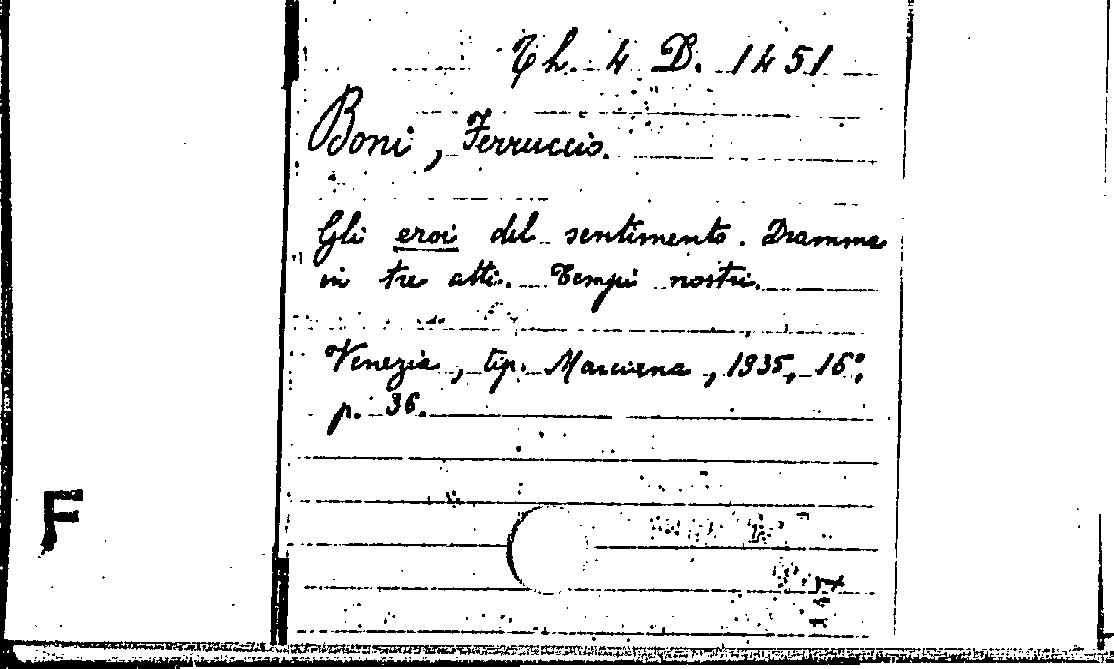 Th. 4 D. 1451
Boni, Ferruccio.
Gli eroi del sentimento. Dramma
in tre atti. Tempi nostri.
Venezia, tip. Marciana, 1935, 16°,
p. 36.
F